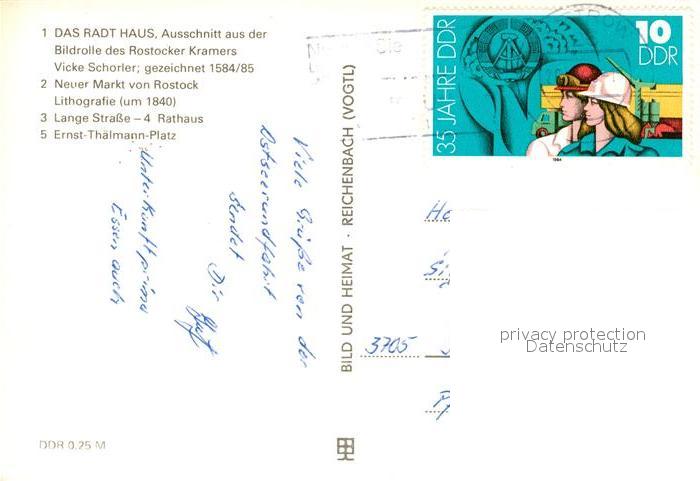 1 DAS RADT HAUS, Ausschnitt aus der
Bildrolle des Rostocker Kramers
Vicke Schorler; gezeichnet 1584/85
2 Neuer Markt von Rostock
Lithografie (um 1840)
3 Lange Straße – 4 Rathaus
5 Ernst-Thälmann-Platz
Viele Grüße von der
Ostseerundfahrt
sendet
Dir
Unterkunft prima
Essen auch
DDR 0,25 M
BILD UND HEIMAT · REICHENBACH (VOGTL)
35 JAHRE DDR
10
DDR
1984
3705
privacy protection
Datenschutz